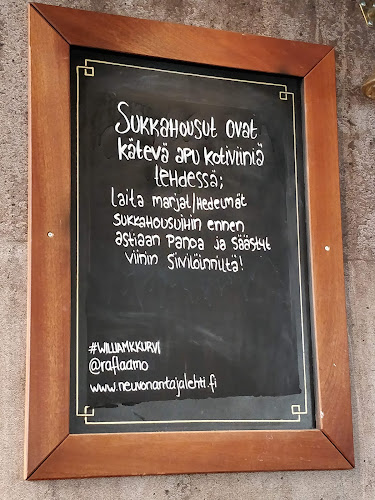 SUKKAHOUSUT OVAT
KÄTEVÄ APU KOTIVIINIÄ
TEHDESSÄ;
LAITA MARJAT/HEDELMÄT
SUKKAHOUSUIHIN ENNEN
ASTIAAN PANOA JA SÄÄSTYT
VIININ SIIVILÖINNILTÄ!
#WILLIAMKKURVI
@raflaamo
www.neuvonantajalehti.fi